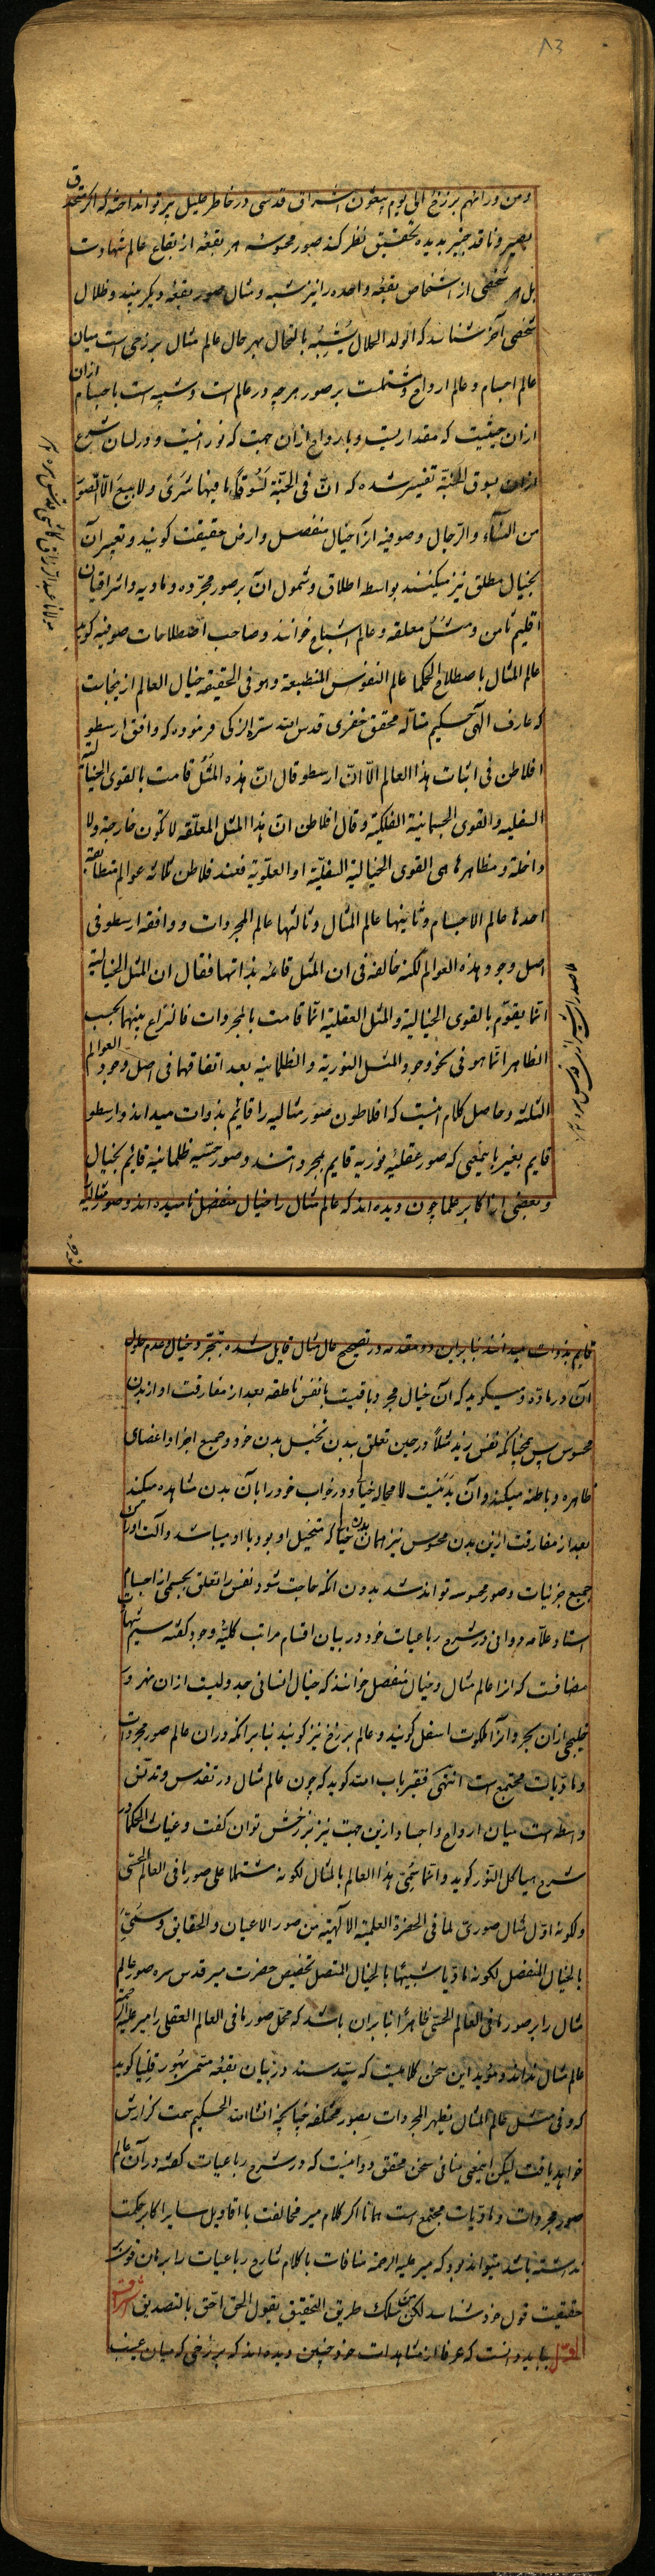 ۸۳
ومن ورائهم برزخ الی یوم یبعثون اشراق قدسی در خاطر علیل پرتو انداخته که اگر محقق
بصیر و ناقد خبیر بدیده تحقیق نظر کند صور محسوسه هر بقعه از بقاع عالم شهادت
بل هر شخصی از اشخاص بقعه واحده را نیز شبه و مثال صور بقعه دیگر بیند و ظلال
شخصی آخر شناسد که الولد الحلال یُشَبَّه بالخال بهر حال عالم مثال برزخی است میان
عالم اجسام و عالم ارواح و مشتملست بر صور هرچه در عالم است و شبیه است باجسام ازان
ازان حیثیت که مقداریست و بارواح ازان جهت که نورانیست و در لسان شرع
ازان بسوق الجنّة تفسیر شده که انّ فی الجنّة لسُوقًا ما فیها شریً ولا بیع الّا الصّوَر
من النّساء والرّجال و صوفیه آنرا خیال منفصل و ارض حقیقت گویند و تعبیر آن
بخیال مطلق نیز میکنند بواسطه اطلاق و شمول آن بر صور مجرّده و مادیه و اشراقیان
اقلیم ثامن و مثل معلقه و عالم اشباح خوانند و صاحب اصطلاحات صوفیه گوید
عالم المثال باصطلاح الحکما عالم النفوس المنطبعة وهو فی الحقیقه خیال العالم ازینجاست
که عارف الهی حکیم متأله محقق خفری قدس الله سرّه الزکی فرموده که وافق ارسطو
افلاطن فی اثبات هذا العالم الّا انّ ارسطو قال انّ هذه المثُل قامت بالقوی الخیالیة
السفلیه والقوی الجسمانیة الفلکیّة وقال افلاطن انّ هذا المثل المعلّقه لا تکون خارجة ولا
داخلة ومظاهرها هی القوی الخیالیة السفلیّة او العلویّة فعند فلاطن ثلاثه عوالم متطابقة
احدها عالم الاجسام وثانیها عالم المثال وثالثها عالم المجردات ووافقه ارسطو فی
اصل وجود هذه العوالم لکنه خالفه فی ان المثل قائمه بذاتها فقال ان المثل الخیالیة
انّما یقوّم بالقوی الخیالیة والمثل العقلیّة انّما قامت بالمجردات فالنزاع بینهما بحسب
الظاهر انّما هو فی نحو وجود المثل النوریة والظلمانیه بعد اتفاقهما فی اصل وجود العوالم
الثلثه و حاصل کلام انیست که افلاطون صور مثالیه را قائم بذوات میداند و ارسطو
قایم بغیر باینمعنی که صور عقلیّه نوریه قایم بمجرداتند و صور حسّیه ظلمانیه قائم بخیال
و بعضی از اکابر علما چون دیده اند که عالم مثال را خیال منفصل نامیده اند و صور مثالیّه
مولانا عبدالرزاق کاشی قدس سره
ملا صدرا شیرازی قدس سره
قایم بذوات میدانند بنابراین دو مقدمه در تصحیح عالم مثال قایل شده بتجرّد خیال و عدم حلول
آن در مادّه و میگوید که آن خیال مجرد باقیست با نفس ناطقه بعد از مفارقت او از بدن
محسوس پس همچنانکه نفس زید مثلاً در حین تعلق ببدن تخیل بدن خود و جمیع اجزا و اعضای
ظاهره و باطنه میکند و آن بدنیست لا محاله خیالی و در خواب خود را بآن بدن مشاهده میکند
بعد از مفارقت ازین بدن محسوس نیز همان بدن خیالی که متخیل او بود با او میباشد و آلت ادراک
جمیع جزئیات و صور محسوسه تواند شد بدون انکه حاجت شود نفس را تعلق بجسمی از اجسام
استاد علّامه دوانی در شرح رباعیات خود در بیان اقسام مراتب کلیّه وجود گفته سیم مرتبه
مضافست که انرا عالم مثال و خیال منفصل خوانند که خیال انسانی جدولیست ازان نهر و
خلیجی ازان بحر و آنرا ملکوت اسفل گویند و عالم برزخ نیز گویند بنابر انکه دران عالم صور مجردات
و مادّیات مجتمع است انتهی فقیر باب الله گوید که چون عالم مثال در تقدس و تدنّس
واسطه است میان ارواح و اجساد ازین جهت نیز برزخش توان گفت و غیاث الحکما در
شرح هیاکل النّور گوید وانّما سُمّی هذا العالم بالمثال لکونه مشتملا علی صور ما فی العالم الحسّی
ولکونه اوّل مثال صوریّ لما فی الحضرة العلمیّة الالهیّه من صور الاعیان والحقایق وسُمّیَ
بالخیال المنفصل لکونه مادّیا شبیهًا بالخیال المتصل تخصیص حضرت میر قدس سره صور عالم
مثال را بصور ما فی العالم الحسّی ظاهراً بنابران باشد که محل صور ما فی العالم العقلی را میر علیه الرحمة
عالم مثال نداند و مؤید این سخن کلامیست که سیّد سند در بیان بقعه متمّم بهُورقلیا گوید
که وفی مثل عالم المثال یظهر المجردات بصور مختلفه چنانچه انشاء الله الحکیم سمت گزارش
خواهد یافت لیکن اینمعنی منافی سخن محقق دوانیست که در شرح رباعیات گفته در آن عالم
صور مجردات و مادّیات مجتمع است همانا اگر کلام میر مخالفت با اقاویل سایر اکابر حکمت
نداشته باشد میتواند بود که میر علیه الرحمه منافات با کلام شارح رباعیات را برهان قوت
حقیقت قول خود شناسد لکن سالک طریق التحقیق یقول الحق احقّ بالتصدیق اشراق
اقول بباید دانست که عرفا از مشاهدات خود چنین دیده اند که برزخی که میان غیب